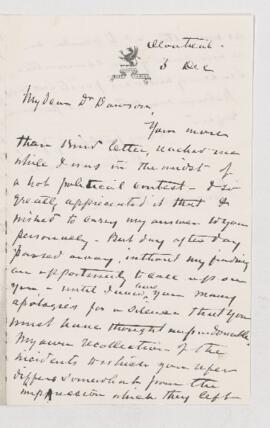 Montreal.
5 Dec
My dear Dr Dawson,
Your more
than kind letter, reached me
while I was in the midst of
a hot political contest - I so
greatly appreciated it that I
wished to carry my answer to you
personally - But day after day
passed away, without my finding
an opportunity to call upon
you - until I owe you many
apologies for a silence that you
must have thought unpardonable.
My own recollection of the
incidents to which you refer
differs somewhat from the
impression which they left